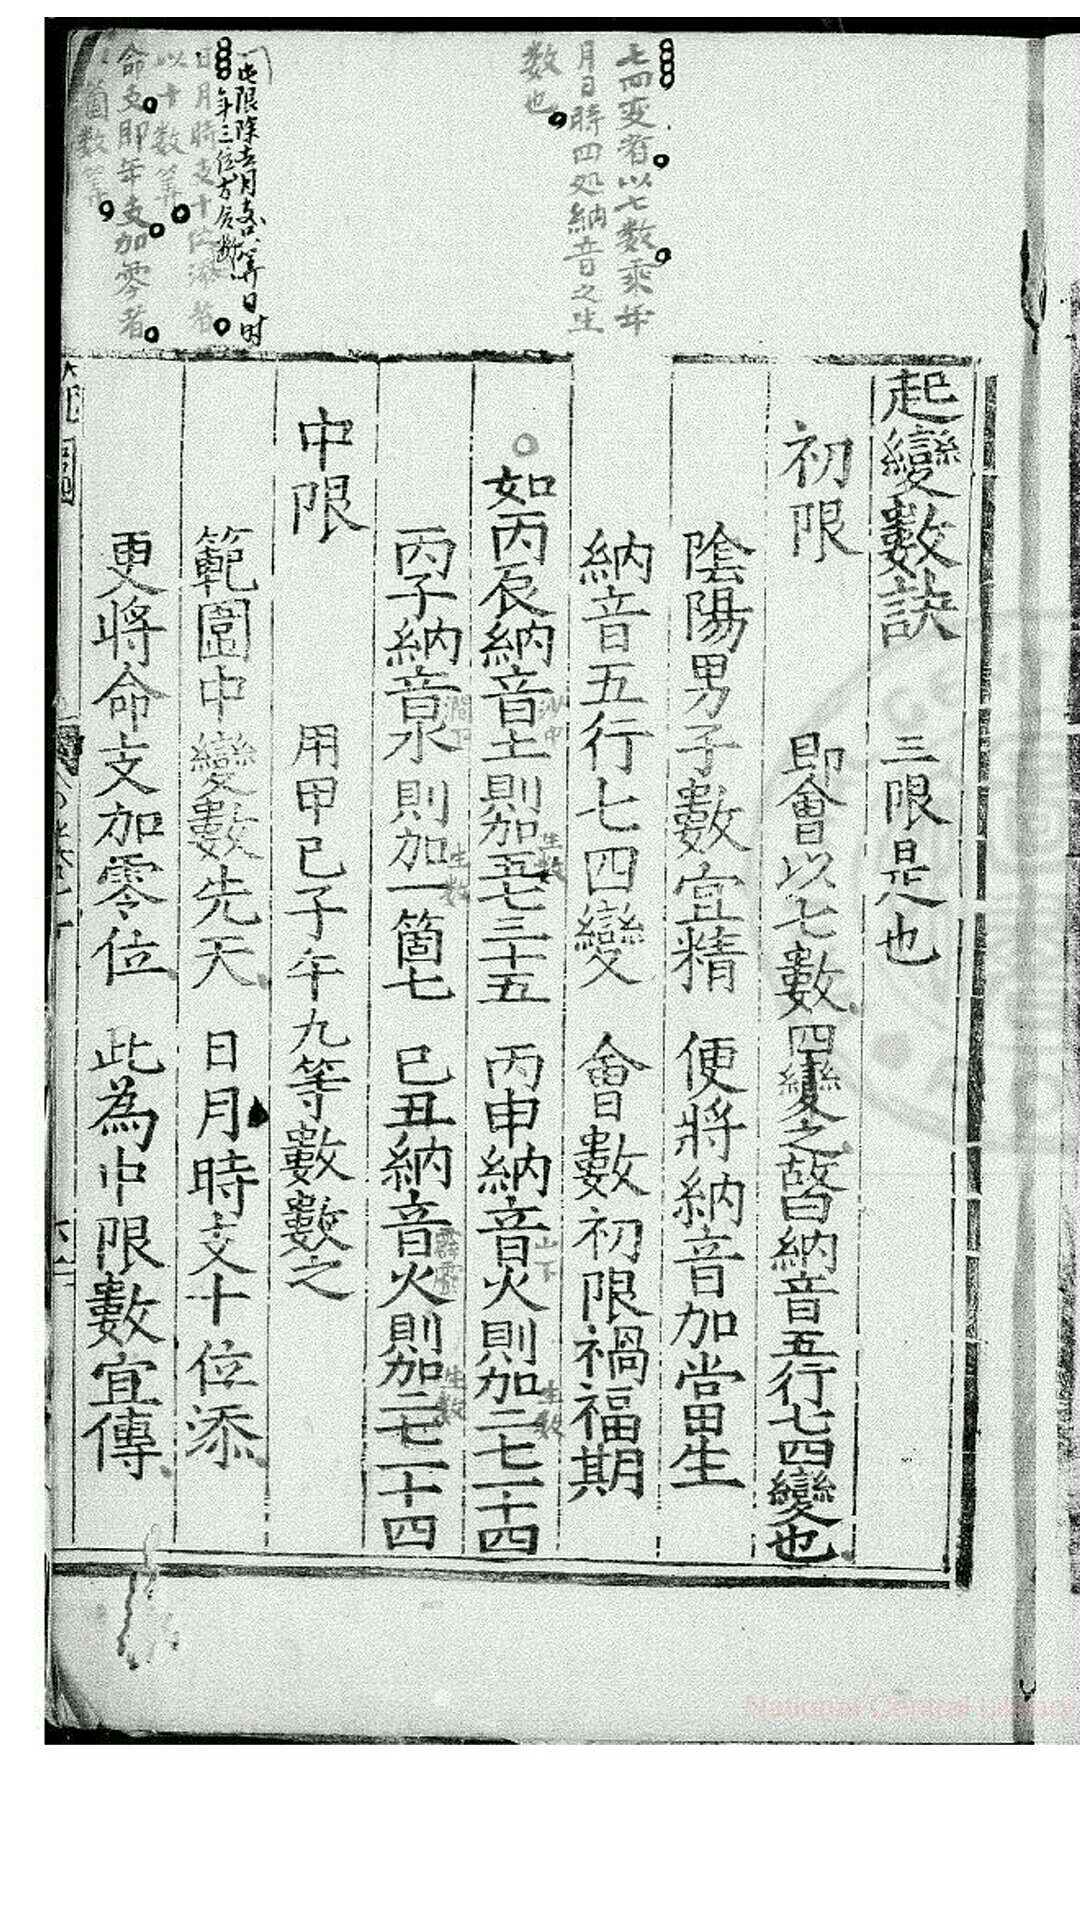 七四变者以七数乘年
月日時四处納音之生
数也
此限除去月支只算日时
年三位方合数
日月時支十位添者
以十數算
命支即年支加零者
箇数算
起變數訣 三限是也
初限 即會以七數四變之故曰納音五行七四變也
陰陽男子數宜精 便將納音加當生
納音五行七四變 會數初限禍福期
如丙辰納音土則加五七三十五 丙申納音火則加二七一十四
沙中 生数 山下 生数
丙子納音水則加一箇七 己丑納音火則加二七一十四
澗下 生数 霹靂 生数
中限 用甲己子午九等數數之
範圍中變數先天 日月時支十位添
更將命支加零位 此為中限數宜傳
National Central Library